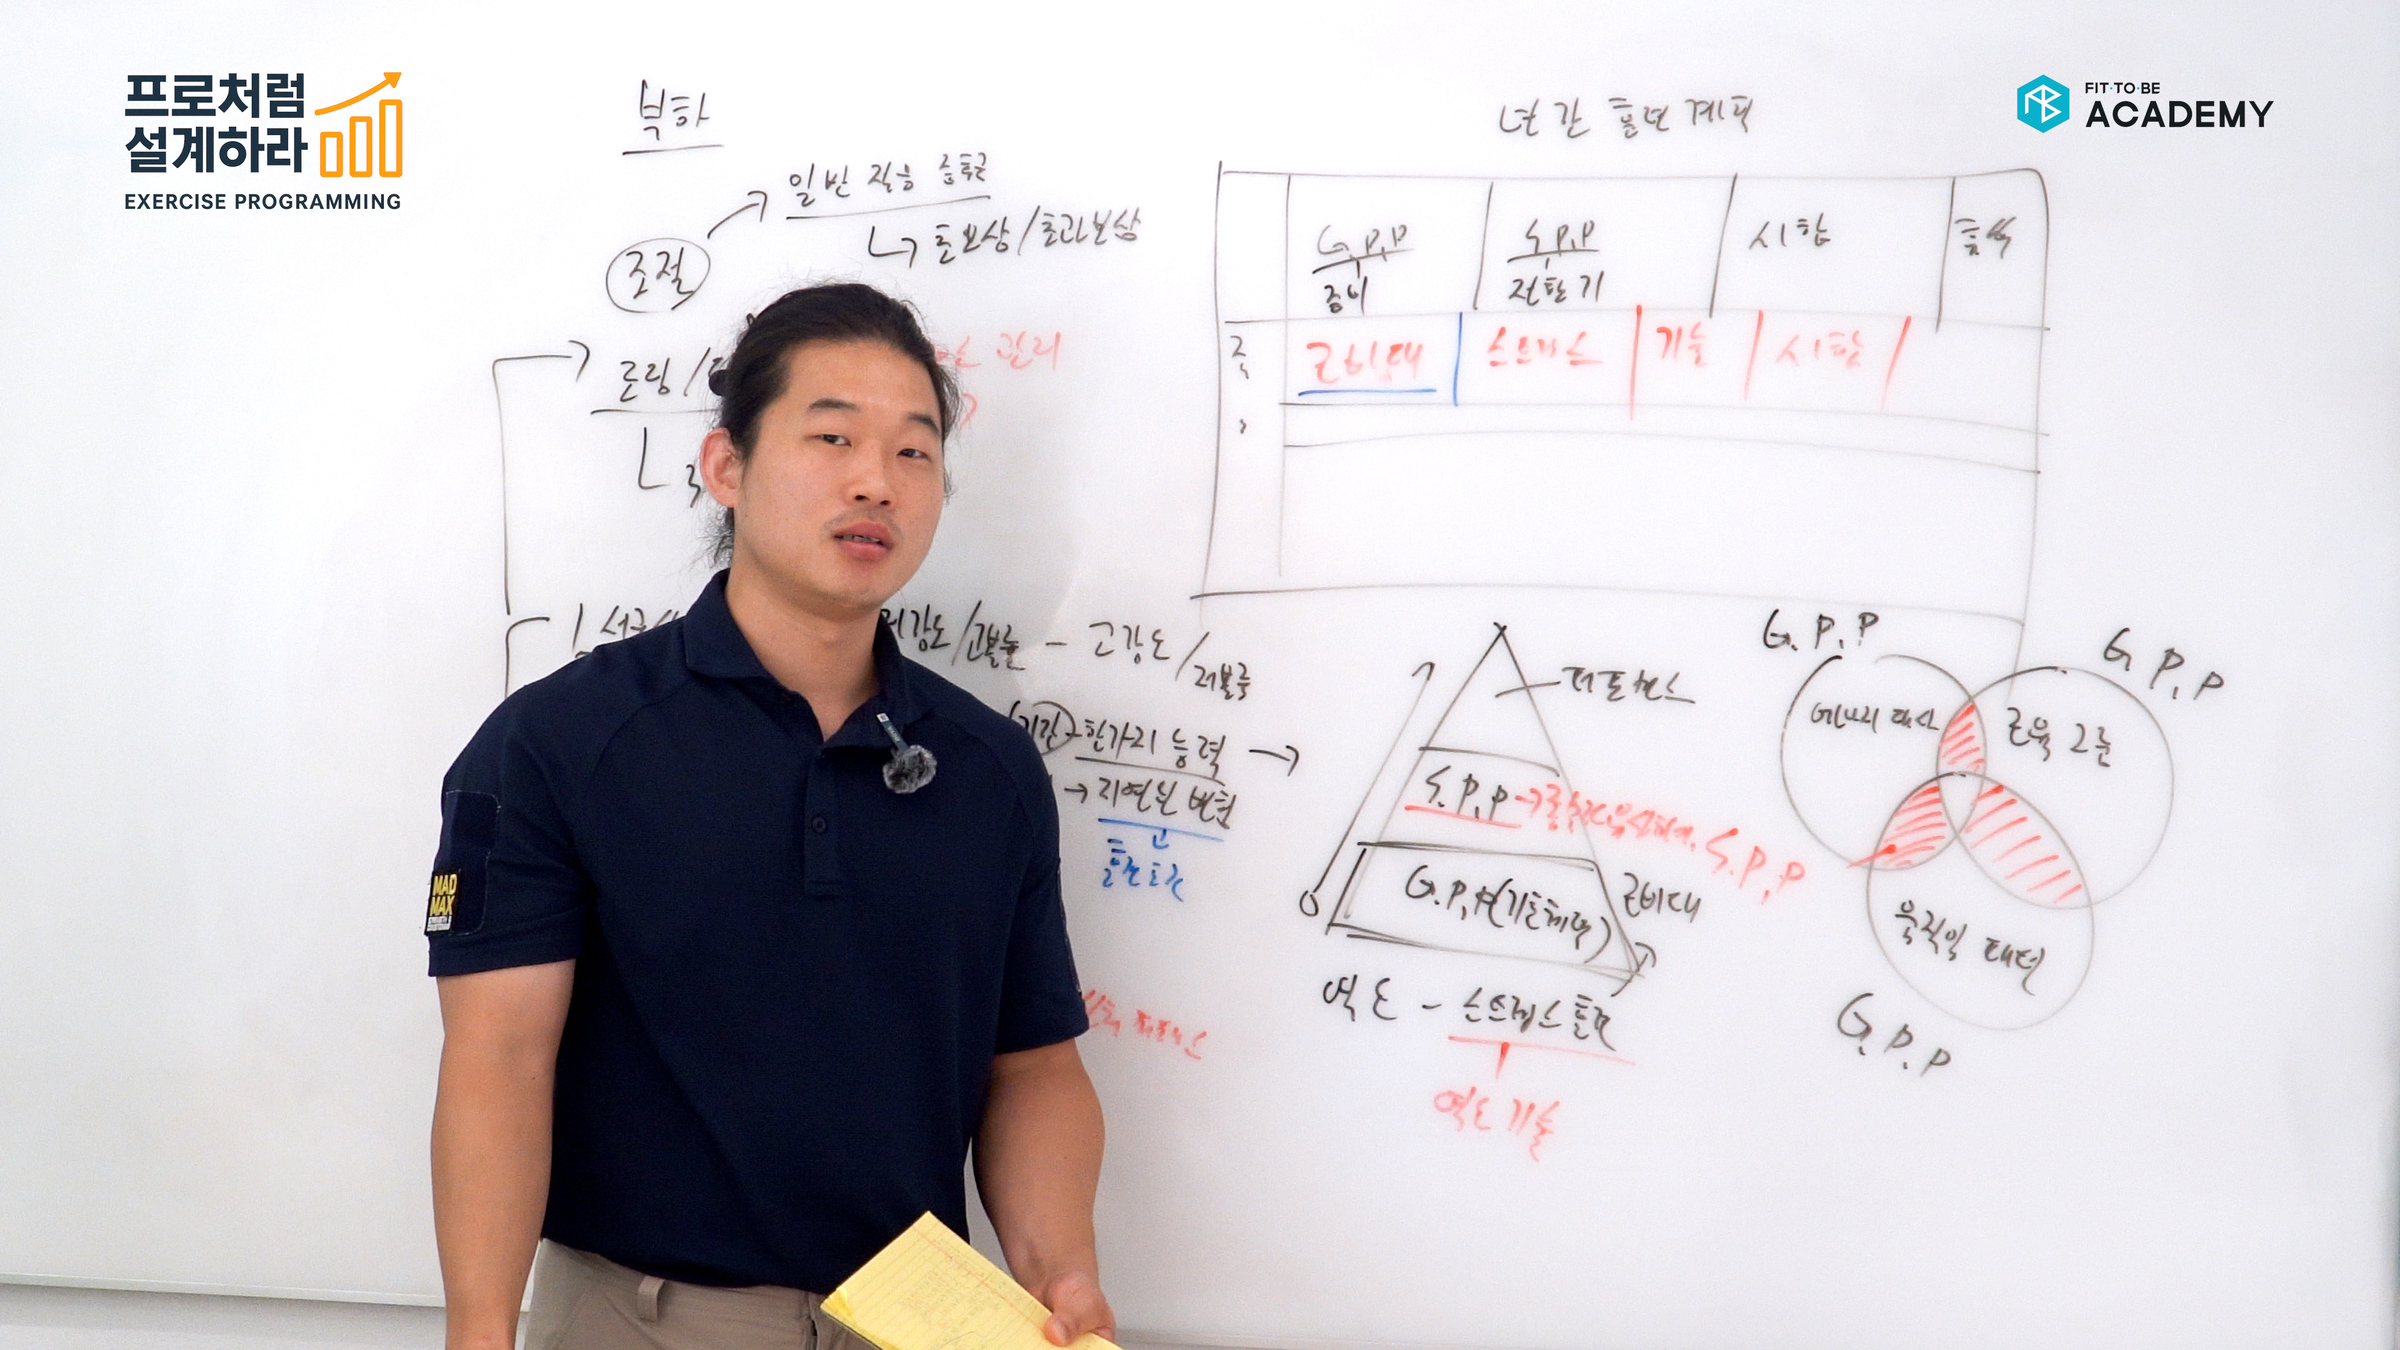 프로처럼
설계하라
EXERCISE PROGRAMMING
FIT·TO·BE
ACADEMY
부하
조절
일반 적응 증후군
초보상/초과보상
로링/
관리
저강도/고볼륨 - 고강도/저볼륨
한가리 능력
지연된 변형
MAD
MAX
년간 훈련 계획
G.P.P
준비
S.P.P
전환기
시합
휴식
근비대
스트레스
기술
시합
퍼포먼스
S.P.P
S.P.P
G.P.P(기초체력)
근비대
역도 - 스트레스 훈련
역도 기술
G.P.P
에너지 대사
G.P.P
근육 그룹
움직임 패턴
G.P.P